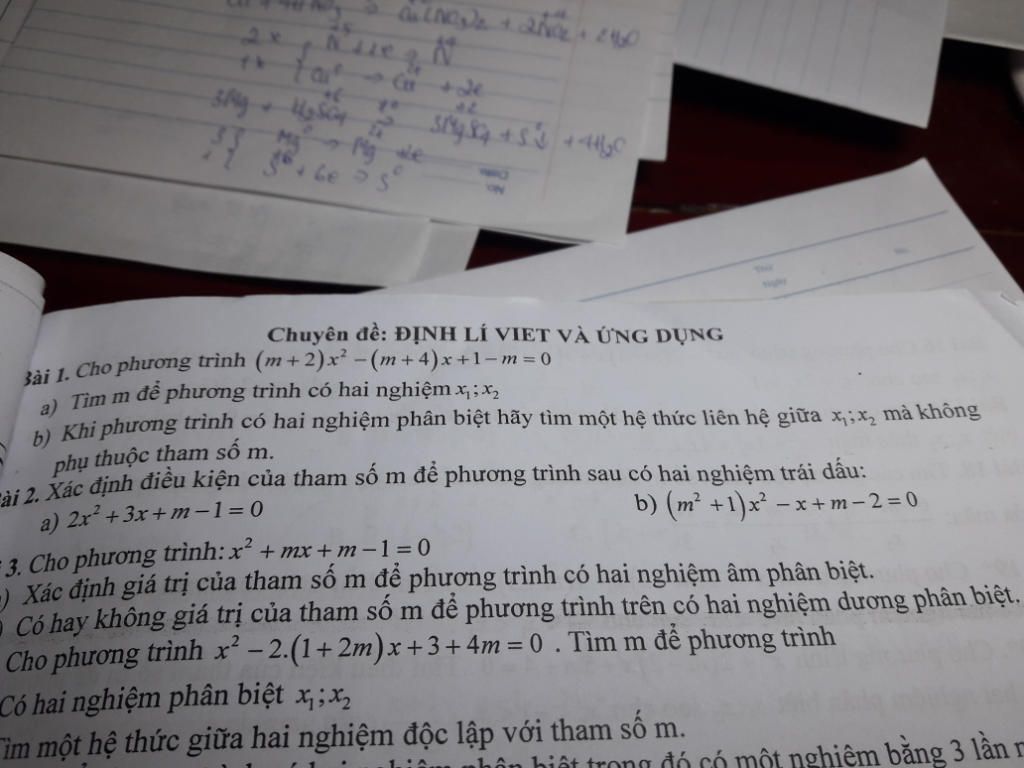 2NO₂ + 2H₂O
+ 2e
3Mg + H₂SO₄ → 3MgSO₄ + S↓ + 4H₂O
S + 6e → S
No.
Date
Thứ
Ngày
No.
Chuyên đề: ĐỊNH LÍ VIET VÀ ỨNG DỤNG
Bài 1. Cho phương trình (m+2)x² −(m+4)x+1−m=0
a) Tìm m để phương trình có hai nghiệm x₁;x₂
b) Khi phương trình có hai nghiệm phân biệt hãy tìm một hệ thức liên hệ giữa x₁;x₂ mà không
phụ thuộc tham số m.
ài 2. Xác định điều kiện của tham số m để phương trình sau có hai nghiệm trái dấu:
a) 2x² +3x+m−1=0 b) (m² +1)x² −x+m−2=0
3. Cho phương trình: x² +mx+m−1=0
) Xác định giá trị của tham số m để phương trình có hai nghiệm âm phân biệt.
) Có hay không giá trị của tham số m để phương trình trên có hai nghiệm dương phân biệt.
Cho phương trình x² −2.(1+2m)x+3+4m=0 . Tìm m để phương trình
Có hai nghiệm phân biệt x₁;x₂
Tìm một hệ thức giữa hai nghiệm độc lập với tham số m.
hai nghiệm phân biệt trong đó có một nghiệm bằng 3 lần n